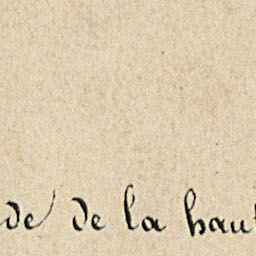 de de la haut